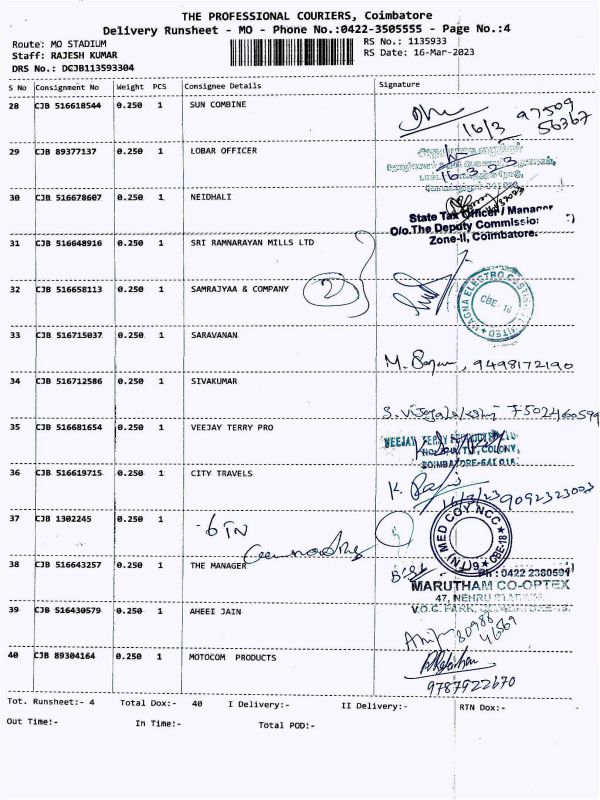 THE PROFESSIONAL COURIERS, Coimbatore
Delivery Runsheet - MO - Phone No.:0422-3505555 - Page No.:4
Route: MO STADIUM RS No.: 1135933
Staff: RAJESH KUMAR RS Date: 16-Mar-2023
DRS No.: DCJB113593304
S No Consignment No Weight PCS Consignee Details Signature
28 CJB 516618544 0.250 1 SUN COMBINE
16/3 97509
56367
29 CJB 89377137 0.250 1 LOBAR OFFICER
16.3.23
30 CJB 516678607 0.250 1 NEIDHALI
State Tax Officer / Manager
O/o.The Deputy Commissio
Zone-II, Coimbatore.
31 CJB 516648916 0.250 1 SRI RAMNARAYAN MILLS LTD
32 CJB 516658113 0.250 1 SAMRAJYAA & COMPANY 2
CBE-18
33 CJB 516715037 0.250 1 SARAVANAN
M. 9498172190
34 CJB 516712586 0.250 1 SIVAKUMAR
S. Vijayalakshmi 7502460599
35 CJB 516681654 0.250 1 VEEJAY TERRY PRO
VEEJAY TERRY
COLONY,
36 CJB 516619715 0.250 1 CITY TRAVELS
K. 16/3/23 9092323023
37 CJB 1302245 0.250 1
6 TN
MED COY NCC
(6 TN) CBE-18
38 CJB 516643257 0.250 1 THE MANAGER
Ph : 0422 2380594
MARUTHAM CO-OPTEX
47, NEHRU STADIUM
V.O.C. PARK,
39 CJB 516430579 0.250 1 AHEEI JAIN
80988
46569
40 CJB 89304164 0.250 1 MOTOCOM PRODUCTS
9787922670
Tot. Runsheet:- 4 Total Dox:- 40 I Delivery:- II Delivery:- RTN Dox:-
Out Time:- In Time:- Total POD:-